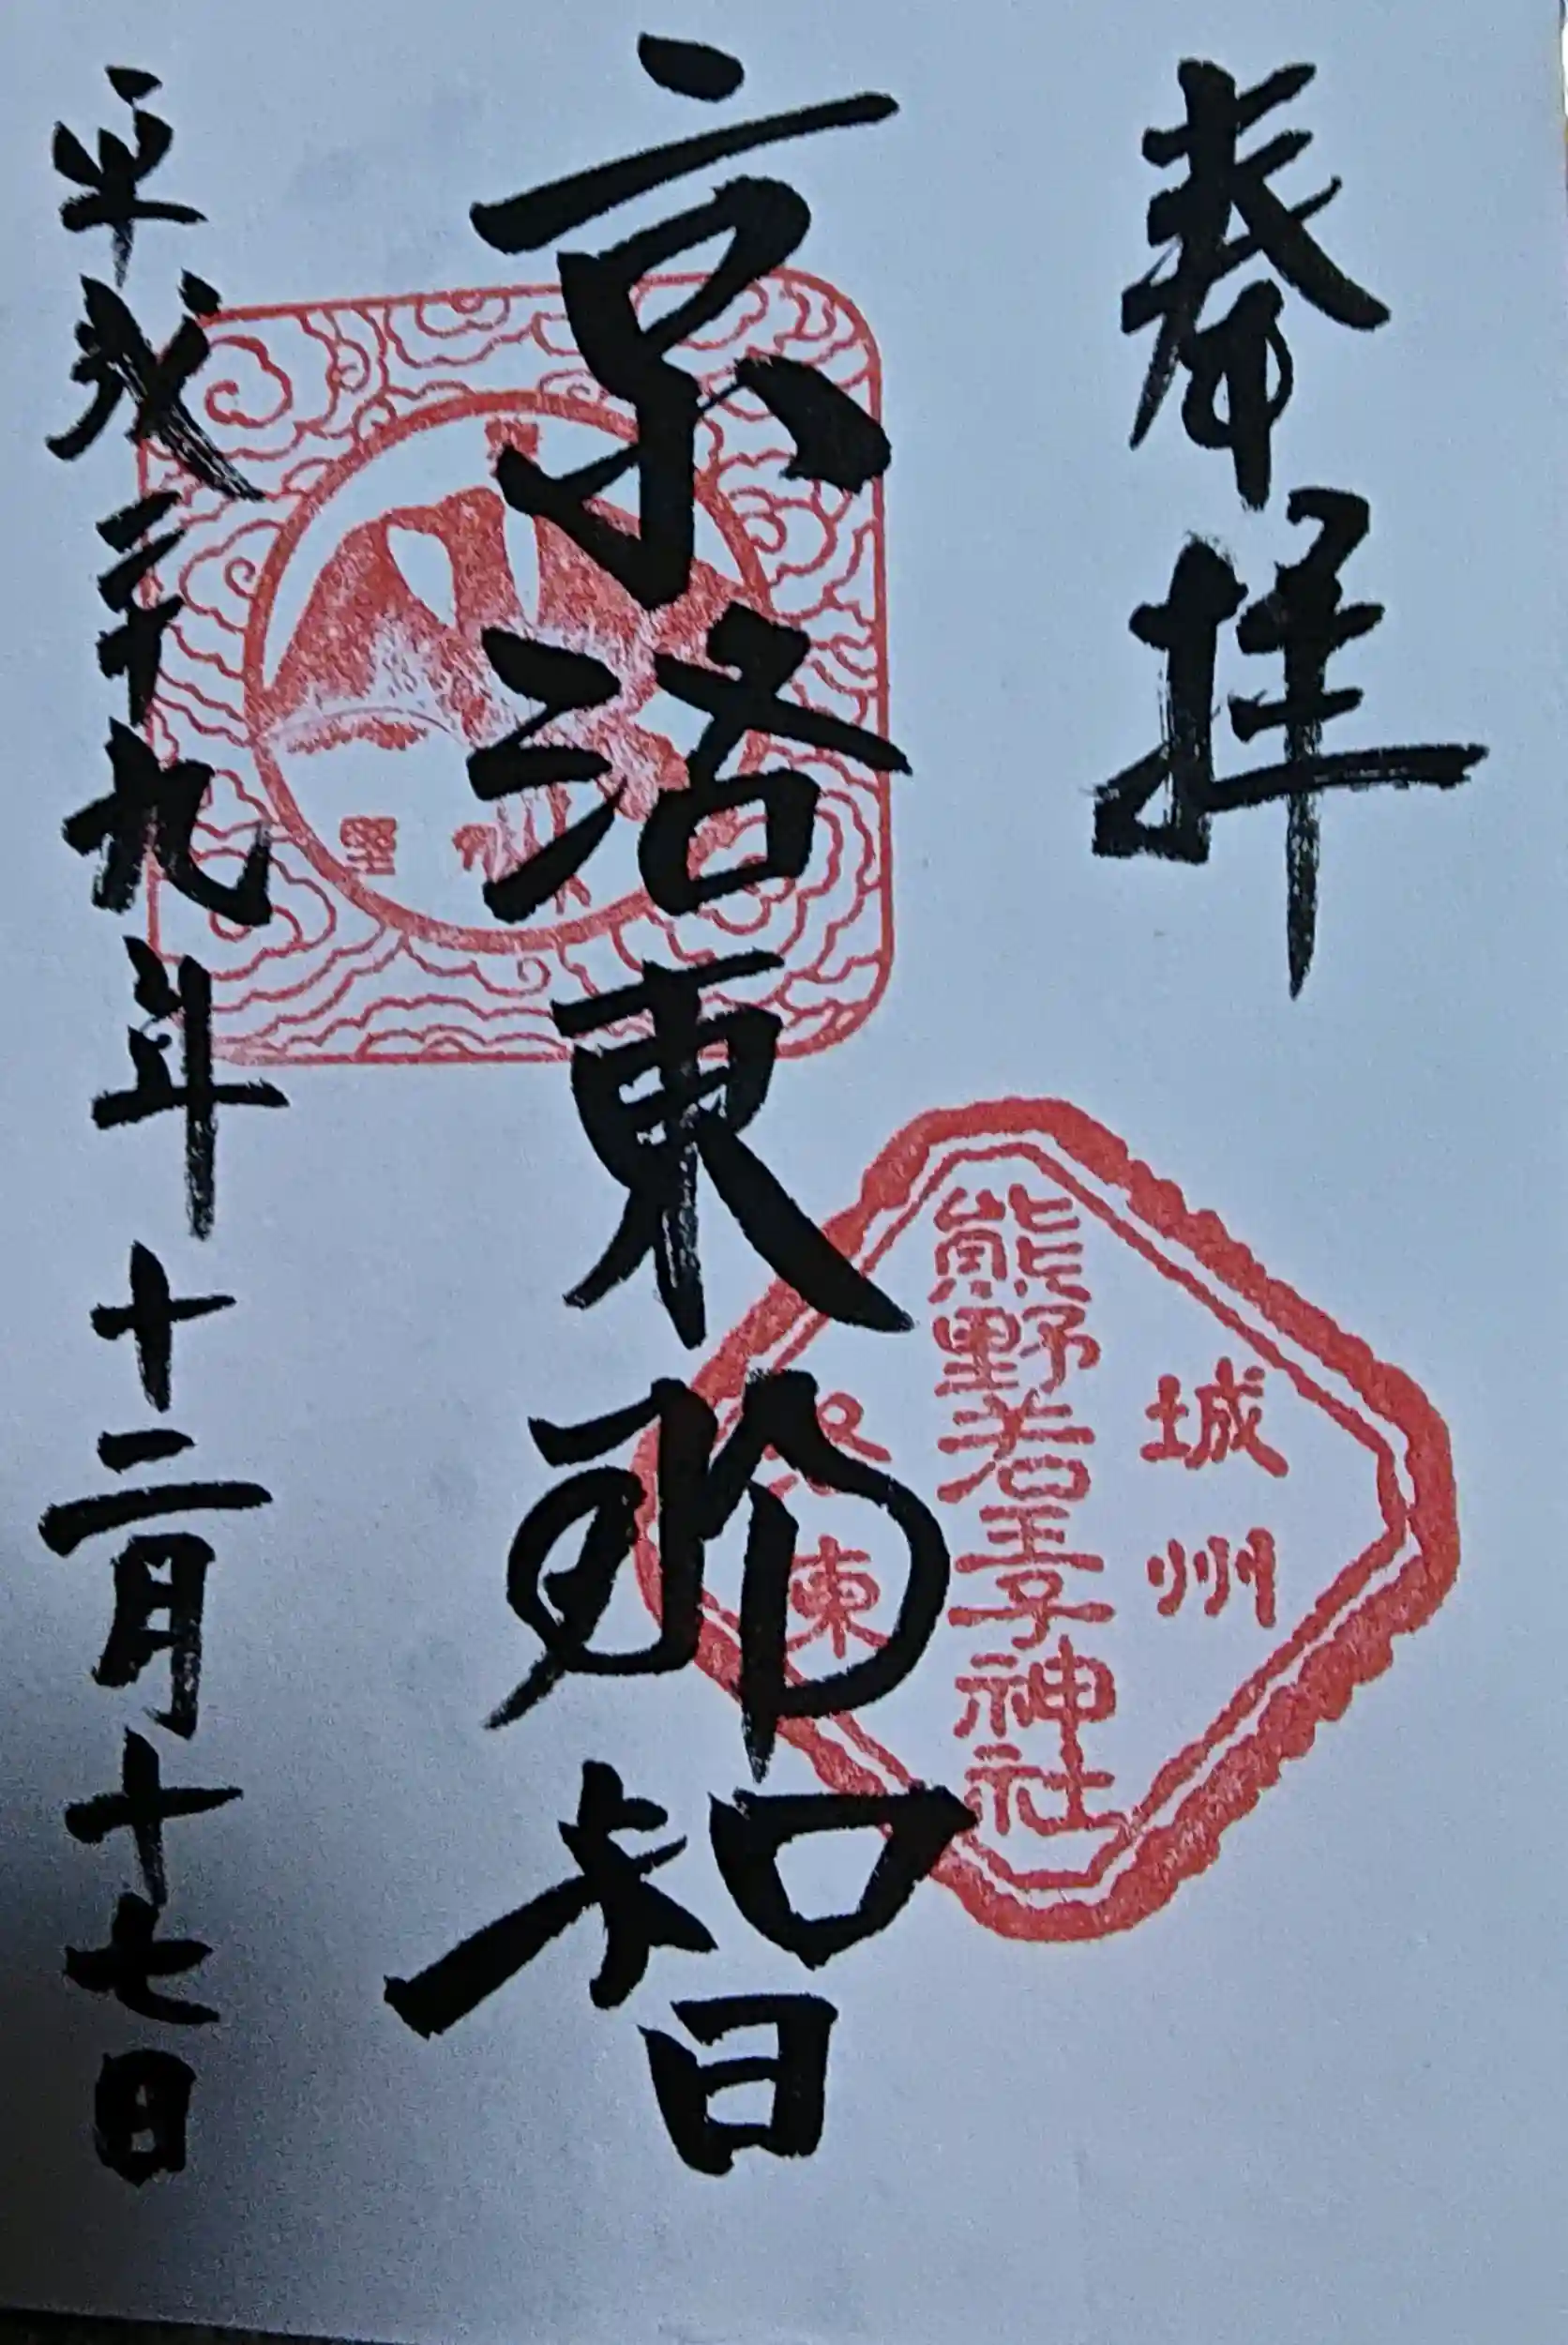 奉拝
城州
熊野若王子神社
東
京洛東那智
平成二十九年十二月十七日